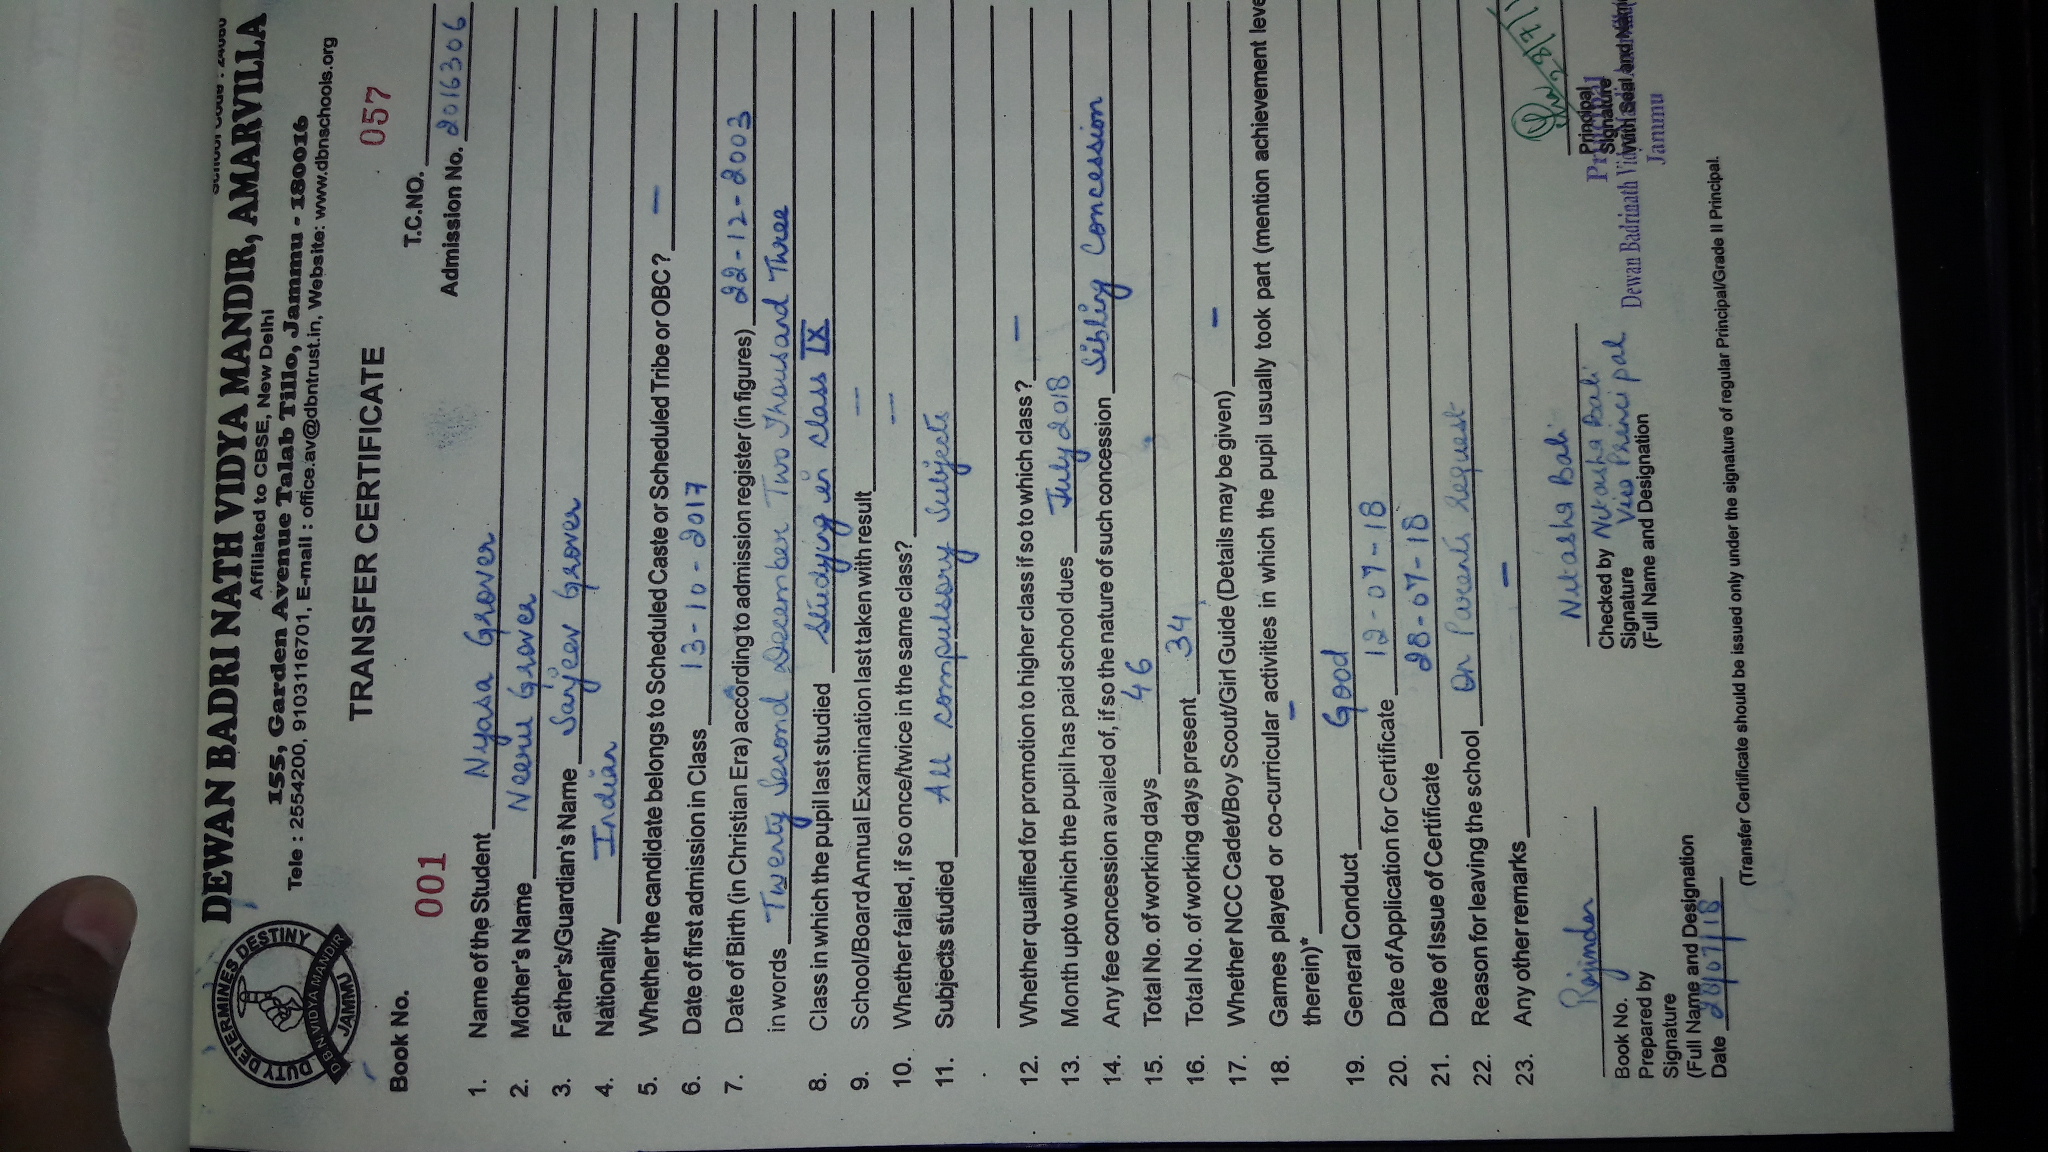 DEWAN BADRI NATH VIDYA MANDIR, AMARVILLA
Affiliated to CBSE, New Delhi
155, Garden Avenue Talab Tillo, Jammu - 180016
Tele : 2554200, 9103116701, E-mail : office.av@dbntrust.in, Website: www.dbnschools.org
DETY DETERMINES DESTINY
D B N VIDYA MANDIR
JAMMU
TRANSFER CERTIFICATE
Book No. 001 T.C.NO. 057
Admission No. 20163306
1. Name of the Student Nyasa Grover
2. Mother's Name Neenu Grover
3. Father's/Guardian's Name Sanjeev Grover
4. Nationality Indian
5. Whether the candidate belongs to Scheduled Caste or Scheduled Tribe or OBC? —
6. Date of first admission in Class 13-10-2017
7. Date of Birth (in Christian Era) according to admission register (in figures) 22-12-2003
in words Twenty Second December Two Thousand Three
8. Class in which the pupil last studied Studying in class IX
9. School/Board Annual Examination last taken with result --
10. Whether failed, if so once/twice in the same class? --
11. Subjects studied All compulsory Subjects
12. Whether qualified for promotion to higher class if so to which class? —
13. Month upto which the pupil has paid school dues July 2018
14. Any fee concession availed of, if so the nature of such concession Sibling Concession
15. Total No. of working days 46
16. Total No. of working days present 34
17. Whether NCC Cadet/Boy Scout/Girl Guide (Details may be given) -
18. Games played or co-curricular activities in which the pupil usually took part (mention achievement
therein)* -
19. General Conduct Good
20. Date of Application for Certificate 12-07-18
21. Date of Issue of Certificate 28-07-18
22. Reason for leaving the school On Parents Request
23. Any other remarks -
Rajinder Nitasha Bali
Book No. Checked by Nitasha Bali Principal
Prepared by Signature Vice Principal Signature
Signature (Full Name and Designation
(Full Name and Designation
Date 28/07/18
Dewan Badrinath
Jammu
(Transfer Certificate should be issued only under the signature of regular Principal/Grade II Principal.